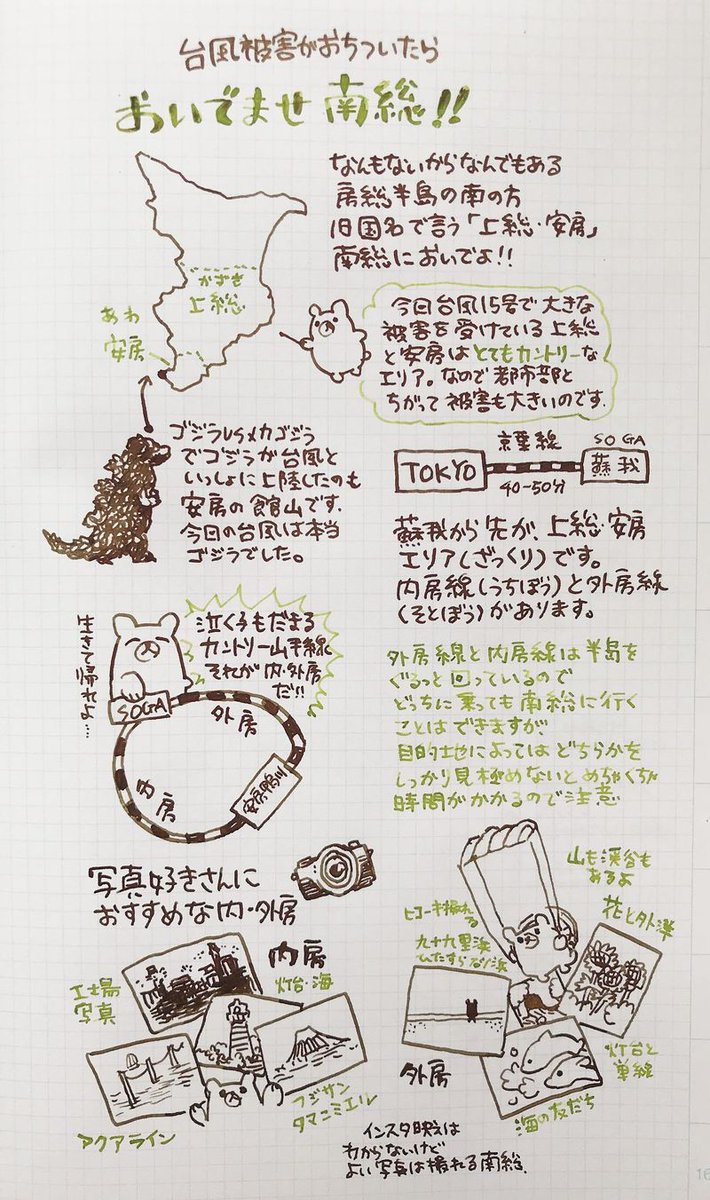 台風被害がおちついたら
おいでませ 南総!!
なんもないからなんでもある
房総半島の南の方
旧国名で言う「上総・安房」
南総においでよ!!
かずさ
上総
あわ
安房
今回台風15号で大きな
被害を受けている上総
と安房はとてもカントリーな
エリア。なので都市部と
ちがって被害も大きいのです。
ゴジラVSメカゴジラ
でゴジラが台風と
いっしょに上陸したのも
安房の館山です。
今回の台風は本当
ゴジラでした。
TOKYO
京葉線
40-50分
SOGA
蘇我
蘇我から先が、上総・安房
エリア(ざっくり)です。
内房線(うちぼう)と外房線
(そとぼう)があります。
生きて帰れよ…
泣く子もだまる
カントリー山手線
それが内・外房
だ!!
SOGA
外房
内房
安房鴨川
外房線と内房線は半島を
ぐるっと回っているので
どっちに乗っても南総に行く
ことはできますが、
目的地によってはどちらかを
しっかり見極めないとめちゃくちゃ
時間がかかるので注意
写真好きさんに
おすすめな内・外房
内房
灯台・海
工場
写真
アクアライン
フジサン
タマニミエル
山も渓谷も
あるよ
ヒコーキ撮れる
九十九里浜
ひたすらな浜
花と外洋
外房
灯台と
単線
海の友だち
インスタ映えは
わからないけど
よい写真は撮れる南総.
16